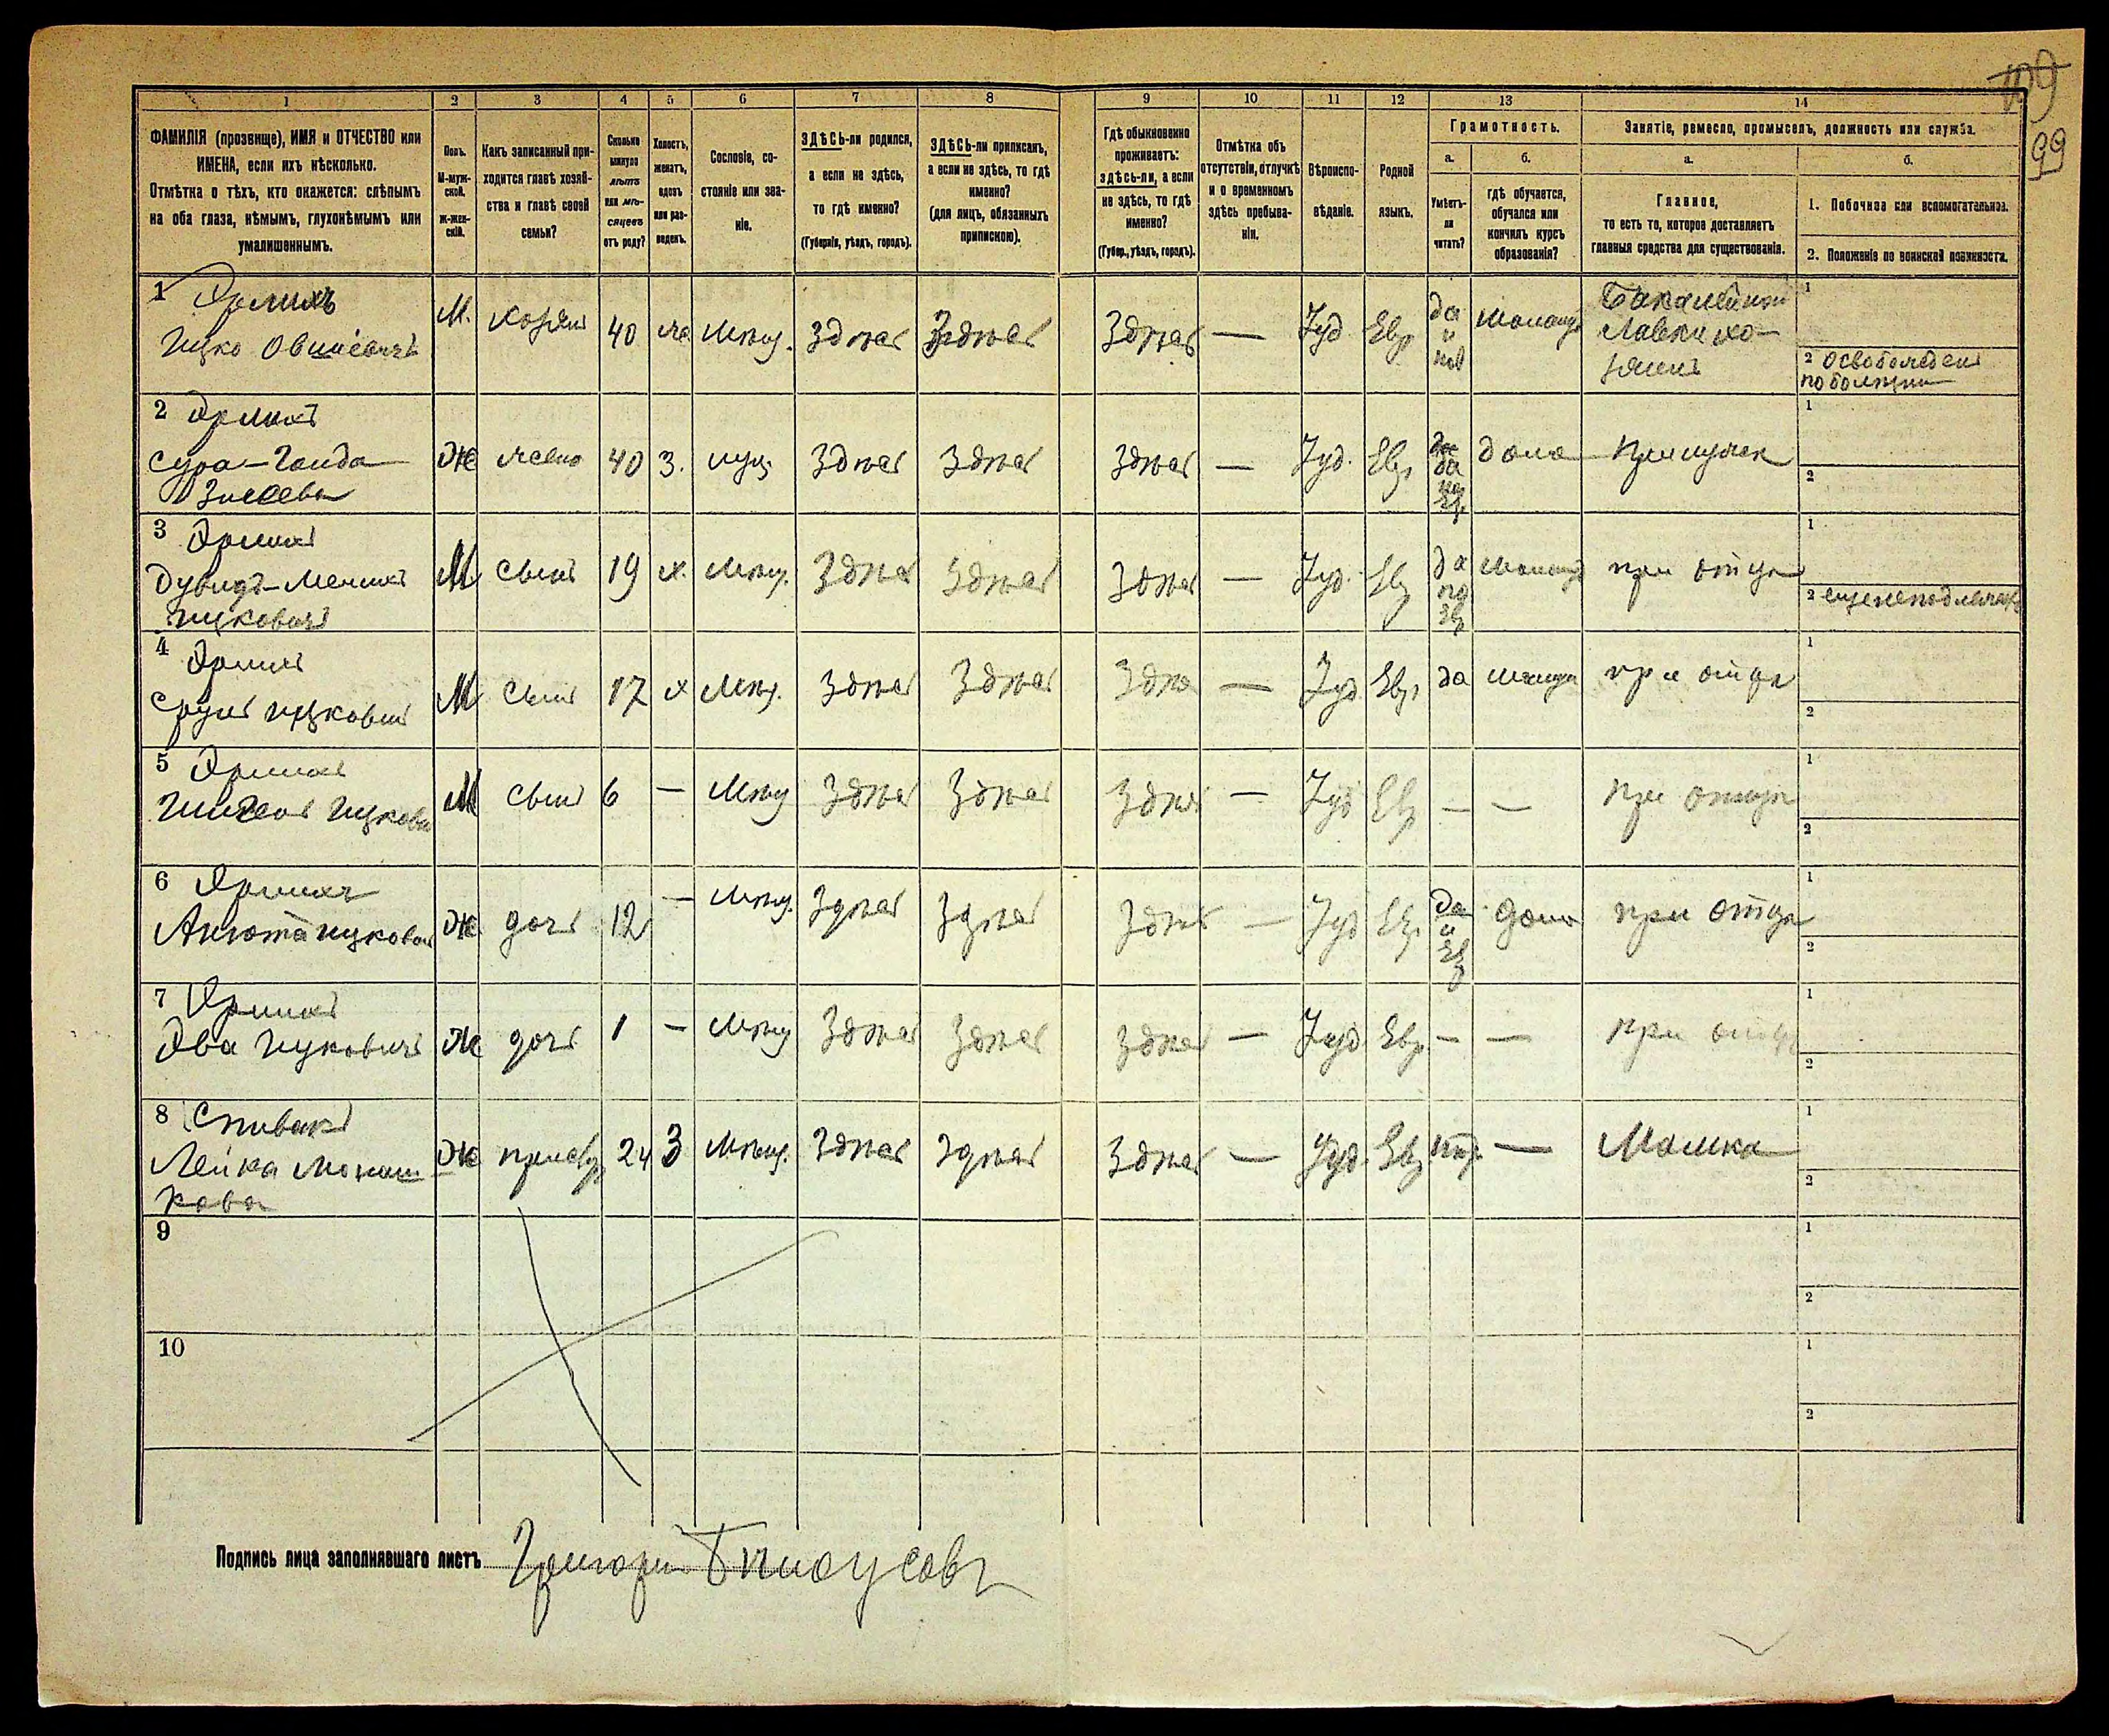 109
99
1 2 3 4 5 6 7 8 9 10 11 12 13 14
ФАМИЛІЯ (прозвище), ИМЯ и ОТЧЕСТВО или
ИМЕНА, если ихъ нѣсколько.
Отмѣтка о тѣхъ, кто окажется: слѣпымъ
на оба глаза, нѣмымъ, глухонѣмымъ или
умалишеннымъ.
Полъ.
М-муж-
ской.
Ж-жен-
скій.
Какъ записанный при-
ходится главѣ хозяй-
ства и главѣ своей
семьи?
Сколько
минуло
лѣтъ
или мѣ-
сяцевъ
отъ роду?
Холостъ,
женатъ,
вдовъ
или раз-
веденъ.
Сословіе, со-
стояніе или зва-
ніе.
ЗДѢСЬ-ли родился,
а если не здѣсь,
то гдѣ именно?
(Губернія, уѣздъ, городъ).
ЗДѢСЬ-ли приписанъ,
а если не здѣсь, то гдѣ
именно?
(для лицъ, обязанныхъ
припискою).
Гдѣ обыкновенно
проживаетъ:
здѣсь-ли, а если
не здѣсь, то гдѣ
именно?
(Губер., уѣздъ, городъ).
Отмѣтка объ
отсутствіи, отлучкѣ
и о временномъ
здѣсь пребыва-
ніи.
Вѣроиспо-
вѣданіе.
Родной
языкъ.
Грамотность.
а.
Умѣетъ-
ли
читать?
б.
гдѣ обучается,
обучался или
кончилъ курсъ
образованія?
Занятіе, ремесло, промыселъ, должность или служба.
а.
Главное,
то есть то, которое доставляетъ
главныя средства для существованія.
б.
1. Побочное или вспомогательное.
2. Положеніе по воинской повинности.
1 Эрлихъ
Ицко М. хозяин 40 же Мѣщ. Здѣсь Здѣсь Здѣсь — Іуд Евр да и Бакалейной
лавки хо-
зяинъ
1
2 освобожден
по болезни
2 Эрлихъ
Сура- Ж жена 40 З. Здѣсь Здѣсь Здѣсь — Іуд. Евр да дома при мужѣ
1
2
3 Эрлихъ
Дувидъ- М сынъ 19 х. Мѣщ. Здѣсь Здѣсь Здѣсь — Іуд. Евр да при отцѣ
Ицковичъ
1
2 еще не подлежа
4 Эрлихъ
Сруль Ицкович М сынъ 17 х Мѣщ. Здѣсь Здѣсь Здѣс — Іуд Евр да при отцѣ
1
2
5 Эрлихъ
Ицкови М сынъ 6 — Мѣщ Здѣсь Здѣсь Здѣсь — Іуд Евр — — при отцѣ
1
2
6 Эрлихъ
Анюта Ицкова Ж дочь 12 — Мѣщ. Здѣсь Здѣсь Здѣсь — Іуд Евр да и Евр дома при отцѣ
1
2
7 Эрлихъ
Эва Ицковичъ Ж дочь 1 — Мѣщ Здѣсь Здѣсь Здѣсь — Іуд Евр — — при отцѣ
1
2
8 Спивакъ
Лейка Ж прислуг 24 З Мѣщ. Здѣсь Здѣсь Здѣсь — Іуд. Евр — Мамка
1
2
9
1
2
10
1
2
Подпись лица заполнявшаго листъ